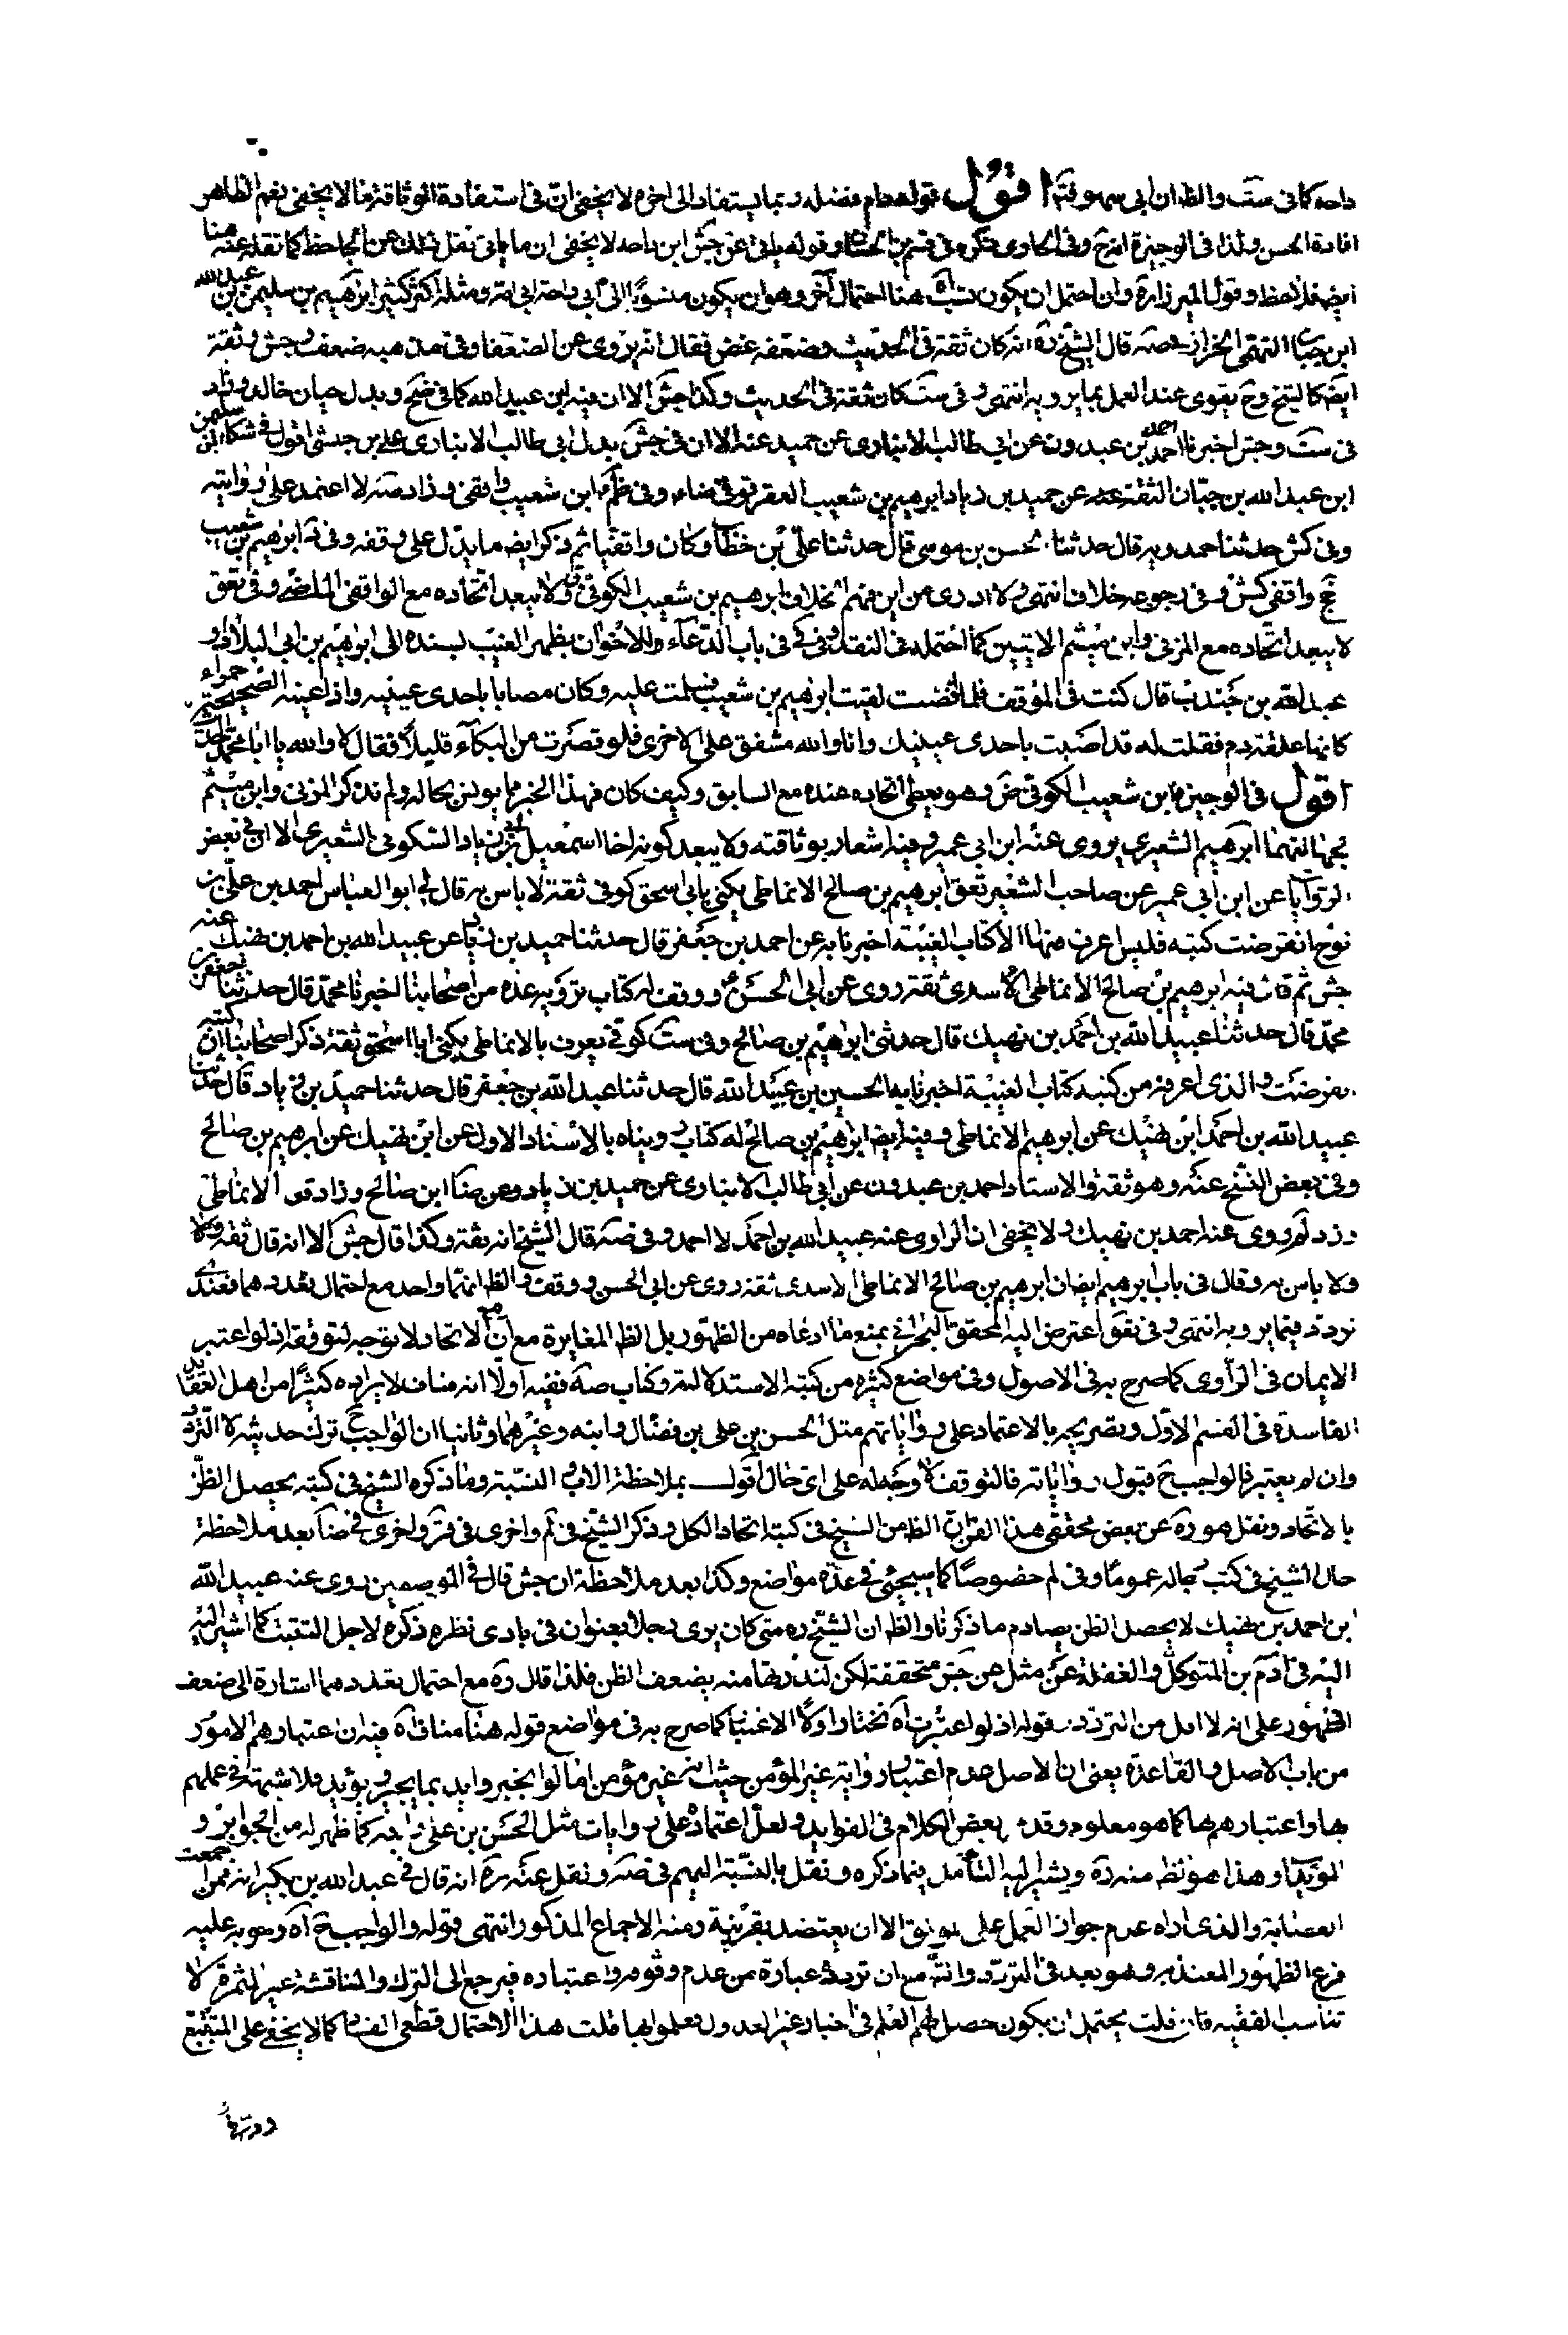 داحه كما في ست والظ ان ابي سهو فتد اقول قوله دام فضله ربما يستفاد الى اخره لا يخفى ان في استفادة الوثاقة ما لا يخفى نعم الظاهر
افادة الحسن ولذا في الوجيزة ادرج وفي الحاوى ذكره في قسم الحسان وقوله ياتي عن جش ابن داحه لا يخفى ان ما ياتي نقل ذلك عن الجاحظ كما نقله عنه هنا
ايضا فلاحظ وقول الميرزا ره وان احتمل ان يكون نسبة اه هنا احتمال آخر وهو ان يكون منسوبا الى ابي داحة ابي امه ومثله اكثر كثير ابرهيم بن سليمن بن عبد الله
ابن حيان التهمى الخزاز صه قال الشيخ ره انه كان ثقة في الحديث وضعفه غض فقال انه يروى عن الضعفا وفي مذهبه ضعف وجش وثقة
ايضا كالشيخ وح يقوى عند العمل بما يرويه انتهى وفي ست كان ثقة في الحديث وكذا جش الا ان فيه ابن عبيد الله كما في ضح وبدل حيان خالد وزاد
في ست وجش اخبرنا احمد بن عبدون عن ابي طالب الانبارى عن حميد عنه الا ان في جش بدل ابي طالب الانبارى على بن حبشى اقول في مشكا ابن سليمن
ابن عبد الله بن حيان الثقة عنه عن حميد بن زياد ابرهيم بن شعيب العقرقوفي ضاء وفي ظم ابن شعيب واقفى وزاد صه لا اعتمد على روايته
وفي كش حدثنا حمدويه قال حدثنا الحسن بن موسى قال حدثنا على بن خطاب وكان واقفيا ثم ذكر ايضا ما يدل على وقفه وفي ابرهيم بن شعيب
واقفى كش وفي رجوعه خلاف انتهى ولا ادرى من اين فهم الخلاف ابرهيم بن شعيب الكوفي ق ولا يبعد اتحاده مع الواقفى الماضي وفي تعق
لا يبعد اتحاده مع المزنى وابن ميثم الاتيين كما احتمله في النقد وفي في باب الدعاء للاخوان بظهر الغيب بسنده الى ابرهيم بن ابي البلاد او
عبد الله بن جندب قال كنت في الموقف فلما افضت لقيت ابرهيم بن شعيب فسلمت عليه وكان مصابا باحدى عينيه واذا عينه الصحيحة حمراء
كانها علقة دم فقلت له قد اصبت باحدى عينيك وانا والله مشفق على الاخرى فلو قصرت من البكاء قليلا فقال لا والله يا ابا محمد
اقول في الوجيزه ابن شعيب الكوفي ض وهو يعطى اتحاده عنده مع السابق وكيف كان فهذا الخبر مما يوذن بحاله ولم نذكر المزنى وابن ميثم
لجهالتهما ابرهيم الشعيرى يروى عنه ابن ابي عمير وفيه اشعار بوثاقته ولا يبعد كونه اخا اسمعيل بن زياد السكونى الشعيرى الا ان في بعض
الروايا عن ابن ابي عمير عن صاحب الشعير تعق ابرهيم بن صالح الانماطى يكنى بابي اسحق كوفي ثقة لا باس به قال لى ابو العباس احمد بن على بن
نوح انقرضت كتبه فليس اعرف منها الا كتاب الغيبة اخبرنا به عن احمد بن جعفر قال حدثنا حميد بن زياد عن عبيد الله بن احمد بن نهيك عنه
جش ثم قال فيه ابرهيم بن صالح الانماطى الاسدى ثقة روى عن ابي الحسن ع ووقف له كتاب يرويه عدة من اصحابنا اخبرنا محمد قال حدثنا جعفر بن
محمد قال حدثنا عبيد الله بن احمد بن نهيك قال حدثنى ابراهيم بن صالح وفي ست كوفي يعرف بالانماطى يكنى ابا اسحق ثقة ذكر اصحابنا ان كتبه
انقرضت والذى اعرفه من كتبه كتاب الغيبة اخبرنا به الحسين بن عبيد الله قال حدثنا عبد الله بن جعفر قال حدثنا حميد بن زياد قال حدثنا
عبيد الله بن احمد ابن نهيك عن ابرهيم الانماطى وفيه ايضا ابراهيم بن صالح له كتاب رويناه بالاسناد الاول عن ابن نهيك عن ابرهيم بن صالح
وفي بعض النسخ عنه وهو ثقة والاسناد احمد بن عبدون عن ابي طالب الانبارى عن حميد بن زياد وعن ضا ابن صالح وزاد قر الانماطى
وزاد لم روى عنه احمد بن نهيك ولا يخفى ان الراوى عنه عبيد الله بن احمد لا احمد وفي صه قال الشيخ انه ثقة وكذا قال جش الا انه قال ثقه
ولا باس به وقال في باب ابرهيم ايضا ان ابرهيم بن صالح الانماطى الاسدى ثقة روى عن ابي الحسن ووقف والظ انهما واحد مع احتمال تعددهما فعندى
تردد فيما يرويه انتهى وفي تعق اعترض اليه المحقق البحرانى بمنع ما ادعاه من الظهور بل الظ المغايرة مع ان الاتحاد لا يوجه لتوقفه اذ لو اعتبر
الايمان في الراوى كما صرح به في الاصول وفي مواضع كثيره من كتبه الاستدلالية وكتاب صه ففيه اولا انه مناف لايراده كثيرا من اهل العقايد
الفاسدة في القسم الاول وتصريحه بالاعتماد على رواياتهم مثل الحسن بن على بن فضال وابنه وغيرهما وثانيا ان الواجب ح ترك حديثه لا التردد
وان لم يعتبر فالواجب ح قبول رواياته فالتوقف لا وجه له على اى حال اقول بملاحظة الاب والنسبة وما ذكره الشيخ في كتبه يحصل الظن
بالاتحاد ونقل هو ره عن بعض محققى هذا الفن ان الظ من الشيخ في كتبه اتحاد الكل وذكر الشيخ في لم واخرى في قر واخرى في ضا بعد ملاحظة
حال الشيخ في كتب رجاله عموما وفي لم خصوصا كما سيجئ في عدة مواضع وكذا بعد ملاحظة ان جش قال في الموضعين روى عنه عبيد الله
ابن احمد بن نهيك لا يحصل الظن يصادم ما ذكرنا والظ ان الشيخ ره متى كان يرى رجلا بعنوان في بادى نظره ذكره لاجل التثبت كما اشير اليه
اليه في آدم بن المتوكل والغفلة عن مثل عن جش متحققة لكن لندرتها منه يضعف الظن فلذا قال ره مع احتمال تعددهما اشارة الى ضعف
الظهور على انه لا اقل من التردد قوله اذ لو اعتبر اه نختار اولا الاعتبار كما صرح به في مواضع قوله هنا مناف اه فيه ان اعتبارهم الامور
من باب الاصل والقاعدة يعنى ان الاصل عدم اعتبار رواية غير المؤمن حيث انه غير مؤمن اما لو انجبر وايد بما يجبر ويؤيد فلا شبهة في عملهم
بها واعتبارهم لها كما هو معلوم وقد مر بعض الكلام في الفوايد ولعل اعتماده على روايات مثل الحسن بن على وابنه كما ظهر له من الجوابر و
المؤيدا وهذا هو الظ منه ره ويشير اليه التأمل فيما ذكره ونقل بالنسبة اليهم في صه ونقل عنه ره انه قال في عبد الله بن بكير انه ممن اجمعت
العصابة والذى اراه عدم جواز العمل على الموثق الا ان يعتضد بقرينة ومنه الاجماع المذكور انتهى قوله والواجب ح اه وجوبه عليه
فرع الظهور المعتد به وهو بعد في التردد وانت مع ان تردد عبارة من عدم وثوقه واعتباده فيرجع الى الترك والمناقشة غير المثمرة لا
تناسب الفقيه فان قلت يحتمل ان يكون حصل لهم العلم في اخبار غير العدول فعملوا بها قلت هذا الاحتمال قطعى الفساد كما لا يخفى على المتتبع